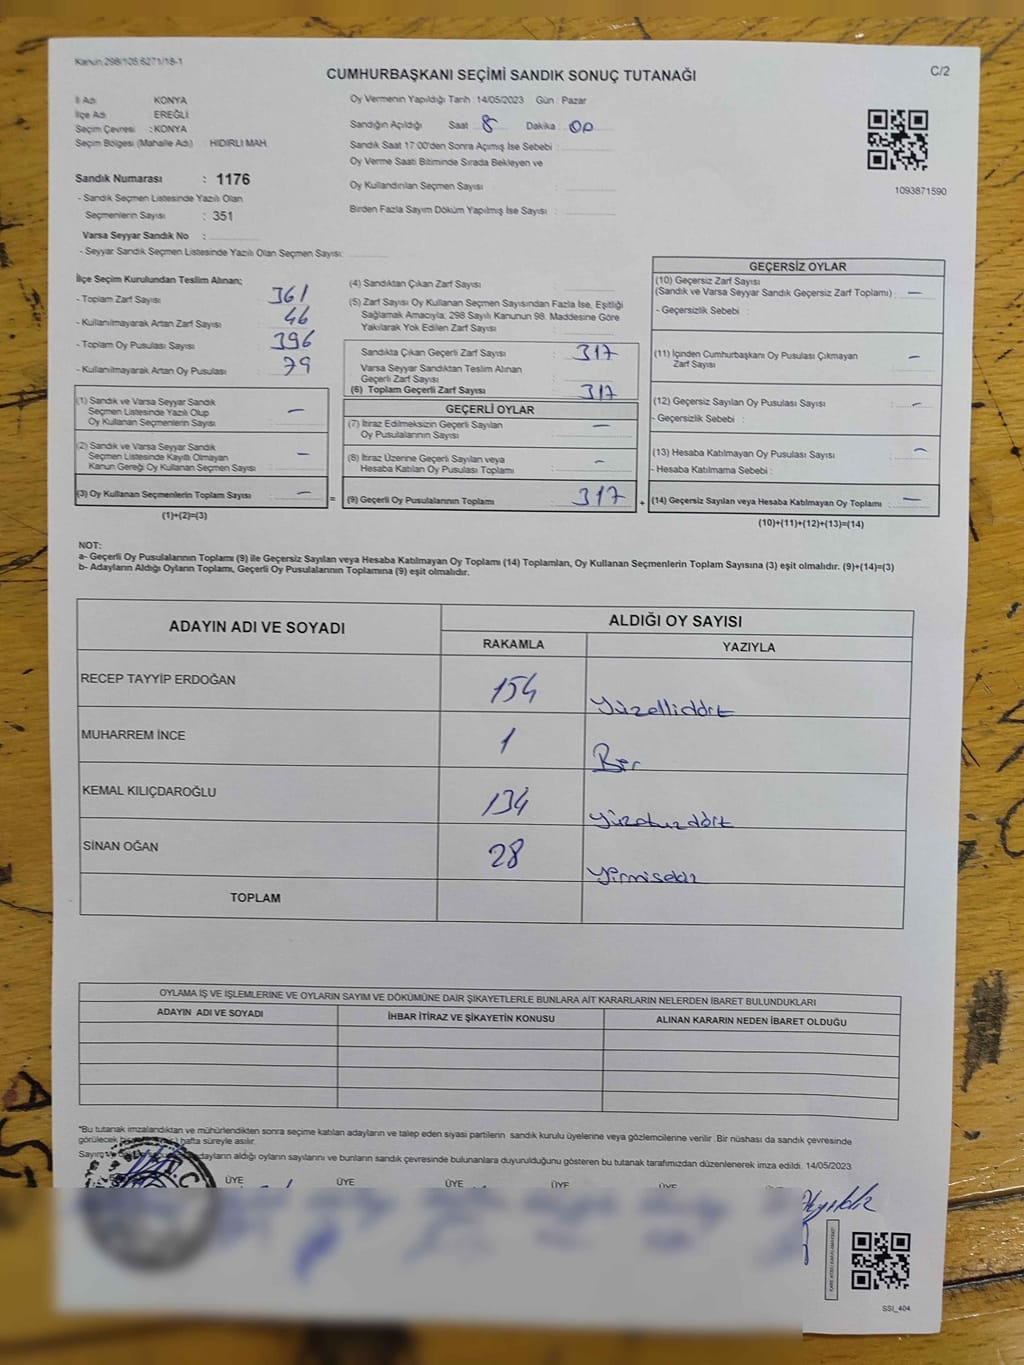 Kanun 298/105,6271/18-1
CUMHURBAŞKANI SEÇİMİ SANDIK SONUÇ TUTANAĞI
C/2
İl Adı KONYA
İlçe Adı EREĞLİ
Seçim Çevresi : KONYA
Seçim Bölgesi (Mahalle Adı) : HIDIRLI MAH.
Sandık Numarası : 1176
- Sandık Seçmen Listesinde Yazılı Olan
Seçmenlerin Sayısı : 351
Varsa Seyyar Sandık No :
- Seyyar Sandık Seçmen Listesinde Yazılı Olan Seçmen Sayısı:
Oy Vermenin Yapıldığı Tarih : 14/05/2023 Gün : Pazar
Sandığın Açıldığı Saat : 8 Dakika : 00
Sandık Saat 17:00'den Sonra Açımış İse Sebebi :
Oy Verme Saati Bitiminde Sırada Bekleyen ve
Oy Kullandırılan Seçmen Sayısı :
Birden Fazla Sayım Döküm Yapılmış İse Sayısı :
1093871590
İlçe Seçim Kurulundan Teslim Alınan;
- Toplam Zarf Sayısı 361
- Kullanılmayarak Artan Zarf Sayısı 46
- Toplam Oy Pusulası Sayısı 396
- Kullanılmayarak Artan Oy Pusulası 79
(1) Sandık ve Varsa Seyyar Sandık
Seçmen Listesinde Yazılı Olup
Oy Kullanan Seçmenlerin Sayısı : —
(2) Sandık ve Varsa Seyyar Sandık
Seçmen Listesinde Kayıtlı Olmayan
Kanun Gereği Oy Kullanan Seçmen Sayısı : —
(3) Oy Kullanan Seçmenlerin Toplam Sayısı : —
(1)+(2)=(3)
=
(4) Sandıktan Çıkan Zarf Sayısı :
(5) Zarf Sayısı Oy Kullanan Seçmen Sayısından Fazla İse, Eşitliği
Sağlamak Amacıyla, 298 Sayılı Kanunun 98. Maddesine Göre
Yakılarak Yok Edilen Zarf Sayısı :
Sandıkta Çıkan Geçerli Zarf Sayısı : 317
Varsa Seyyar Sandıktan Teslim Alınan
Geçerli Zarf Sayısı :
(6) Toplam Geçerli Zarf Sayısı : 317
GEÇERLİ OYLAR
(7) İtiraz Edilmeksizin Geçerli Sayılan
Oy Pusulalarının Sayısı : —
(8) İtiraz Üzerine Geçerli Sayılan veya
Hesaba Katılan Oy Pusulası Toplamı : —
(9) Geçerli Oy Pusulalarının Toplamı : 317
+
GEÇERSİZ OYLAR
(10) Geçersiz Zarf Sayısı
(Sandık ve Varsa Seyyar Sandık Geçersiz Zarf Toplamı) : —
- Geçersizlik Sebebi :
(11) İçinden Cumhurbaşkanı Oy Pusulası Çıkmayan
Zarf Sayısı : —
(12) Geçersiz Sayılan Oy Pusulası Sayısı : —
- Geçersizlik Sebebi :
(13) Hesaba Katılmayan Oy Pusulası Sayısı : —
- Hesaba Katılmama Sebebi :
(14) Geçersiz Sayılan veya Hesaba Katılmayan Oy Toplamı : —
(10)+(11)+(12)+(13)=(14)
NOT:
a- Geçerli Oy Pusulalarının Toplamı (9) ile Geçersiz Sayılan veya Hesaba Katılmayan Oy Toplamı (14) Toplamları, Oy Kullanan Seçmenlerin Toplam Sayısına (3) eşit olmalıdır. (9)+(14)=(3)
b- Adayların Aldığı Oyların Toplamı, Geçerli Oy Pusulalarının Toplamına (9) eşit olmalıdır.
ADAYIN ADI VE SOYADI ALDIĞI OY SAYISI
RAKAMLA YAZIYLA
RECEP TAYYİP ERDOĞAN 154 Yüzellidört
MUHARREM İNCE 1 Bir
KEMAL KILIÇDAROĞLU 134 yüzotuzdört
SİNAN OĞAN 28 yirmisekiz
TOPLAM
OYLAMA İŞ VE İŞLEMLERİNE VE OYLARIN SAYIM VE DÖKÜMÜNE DAİR ŞİKAYETLERLE BUNLARA AİT KARARLARIN NELERDEN İBARET BULUNDUKLARI
ADAYIN ADI VE SOYADI İHBAR İTİRAZ VE ŞİKAYETİN KONUSU ALINAN KARARIN NEDEN İBARET OLDUĞU
*Bu tutanak imzalandıktan ve mühürlendikten sonra seçime katılan adayların ve talep eden siyasi partilerin sandık kurulu üyelerine veya gözlemcilerine verilir. Bir nüshası da sandık çevresinde
görülecek hafta süreyle asılır.
adayların aldığı oyların sayılarını ve bunların sandık çevresinde bulunanlara duyurulduğunu gösteren bu tutanak tarafımızdan düzenlenerek imza edildi. 14/05/2023
ÜYE ÜYE ÜYE ÜYE ÜYE
SSI_404